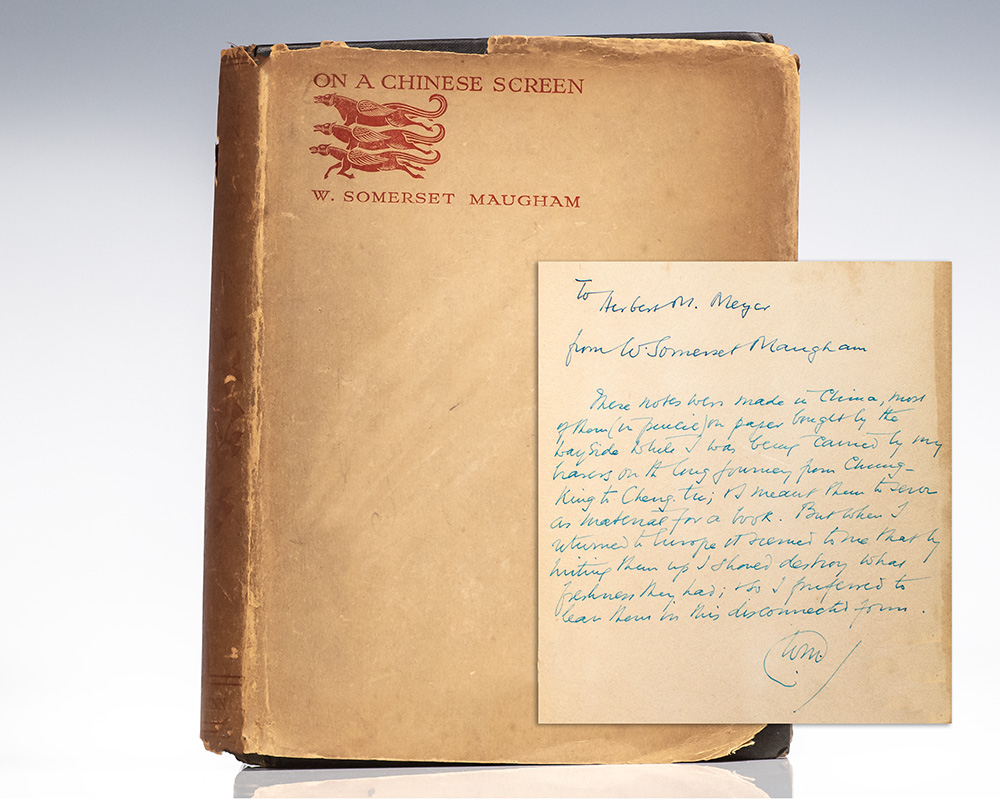 ON A CHINESE SCREEN
W. SOMERSET MAUGHAM
To
Herbert M. Meyer
from W. Somerset Maugham
These notes were made in China, most
of them (in pencil) on paper bought by the
wayside while I was being carried by my
bearers on the long journey from Chung-
King to Cheng-tu; & I meant them to serve
as material for a book. But when I
returned to Europe it seemed to me that by
writing them up I should destroy what
freshness they had; & so I preferred to
leave them in this disconnected form.
WM